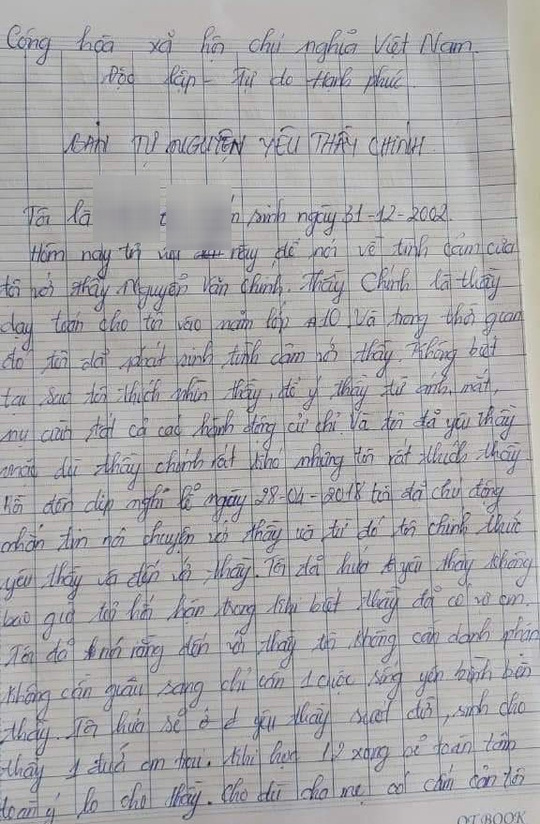 Cộng hòa xã hội chủ nghĩa Việt Nam.
Độc lập - Tự do - Hạnh phúc.
BẢN TỰ NGUYỆN YÊU THẦY CHINH
Tôi là n sinh ngày 31-12-2002.
Hôm nay tôi này để nói về tình cảm của
tôi với thầy Nguyễn Văn Chinh. Thầy Chinh là thầy
dạy toán cho tôi vào năm lớp 10. Và trong thời gian
đó tôi đã phát sinh tình cảm với thầy. Không biết
tại sao tôi thích nhìn thầy, để ý thầy từ ánh mắt,
nụ cười tất cả các hành động cử chỉ và tôi đã yêu thầy
mặc dù thầy chinh rất khó nhưng tôi rất thích thầy
đến dịp nghỉ lễ ngày 28-04-2018 tôi đã chủ động
nhắn tin nói chuyện với thầy và từ đó tôi chính thức
yêu thầy và đến với thầy. Tôi đã hứa yêu thầy không
bao giờ tôi hối hận trong khi biết thầy đã có vợ con.
Tôi đã nói rằng đến với thầy tôi không cần danh phận
không cần giàu sang chỉ cần 1 cuộc sống yên bình bên
thầy. Tôi hứa sẽ ở yêu thầy suốt đời, sinh cho
thầy 1 đứa con trai. Khi học 12 xong sẽ toàn tâm
toàn ý lo cho thầy. Cho dù cha mẹ có cấm cản tôi
QT.BOOK